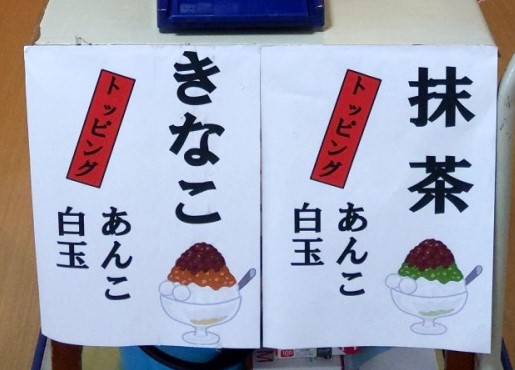 抹茶
トッピング
あんこ
白玉
きなこ
トッピング
あんこ
白玉